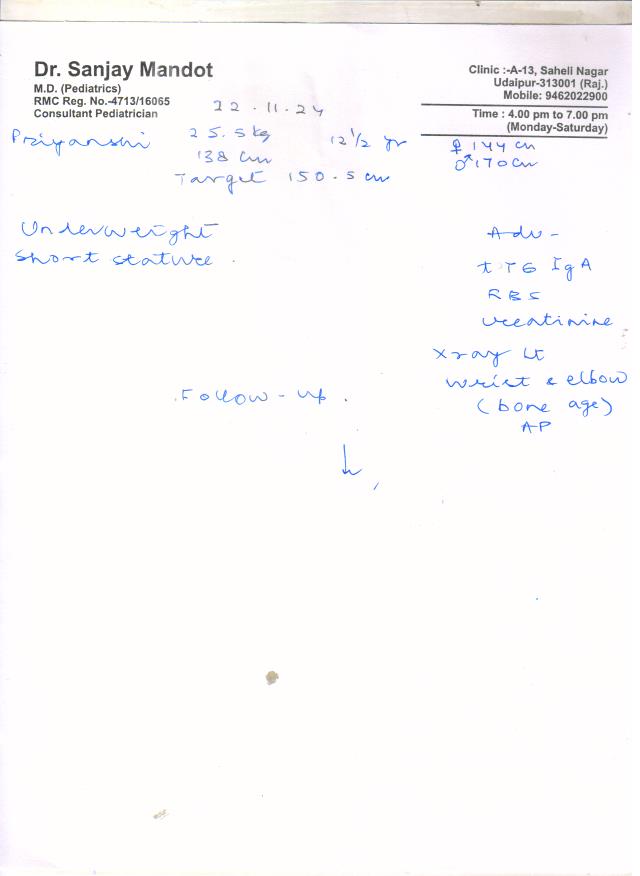 Dr. Sanjay Mandot
M.D. (Pediatrics)
RMC Reg. No.-4713/16065
Consultant Pediatrician
Clinic :-A-13, Saheli Nagar
Udaipur-313001 (Raj.)
Mobile: 9462022900
Time : 4.00 pm to 7.00 pm
(Monday-Saturday)
22.11.24
Priyanshi 25.5kg 12 1/2 yr ♀ 144 cm
138 cm ♂ 170 cm
Target 150.5 cm
Underweight
Short stature.
Adv -
tTG IgA
RBS
creatinine
Xray Lt
wrist & elbow
(bone age)
AP
Follow-up.